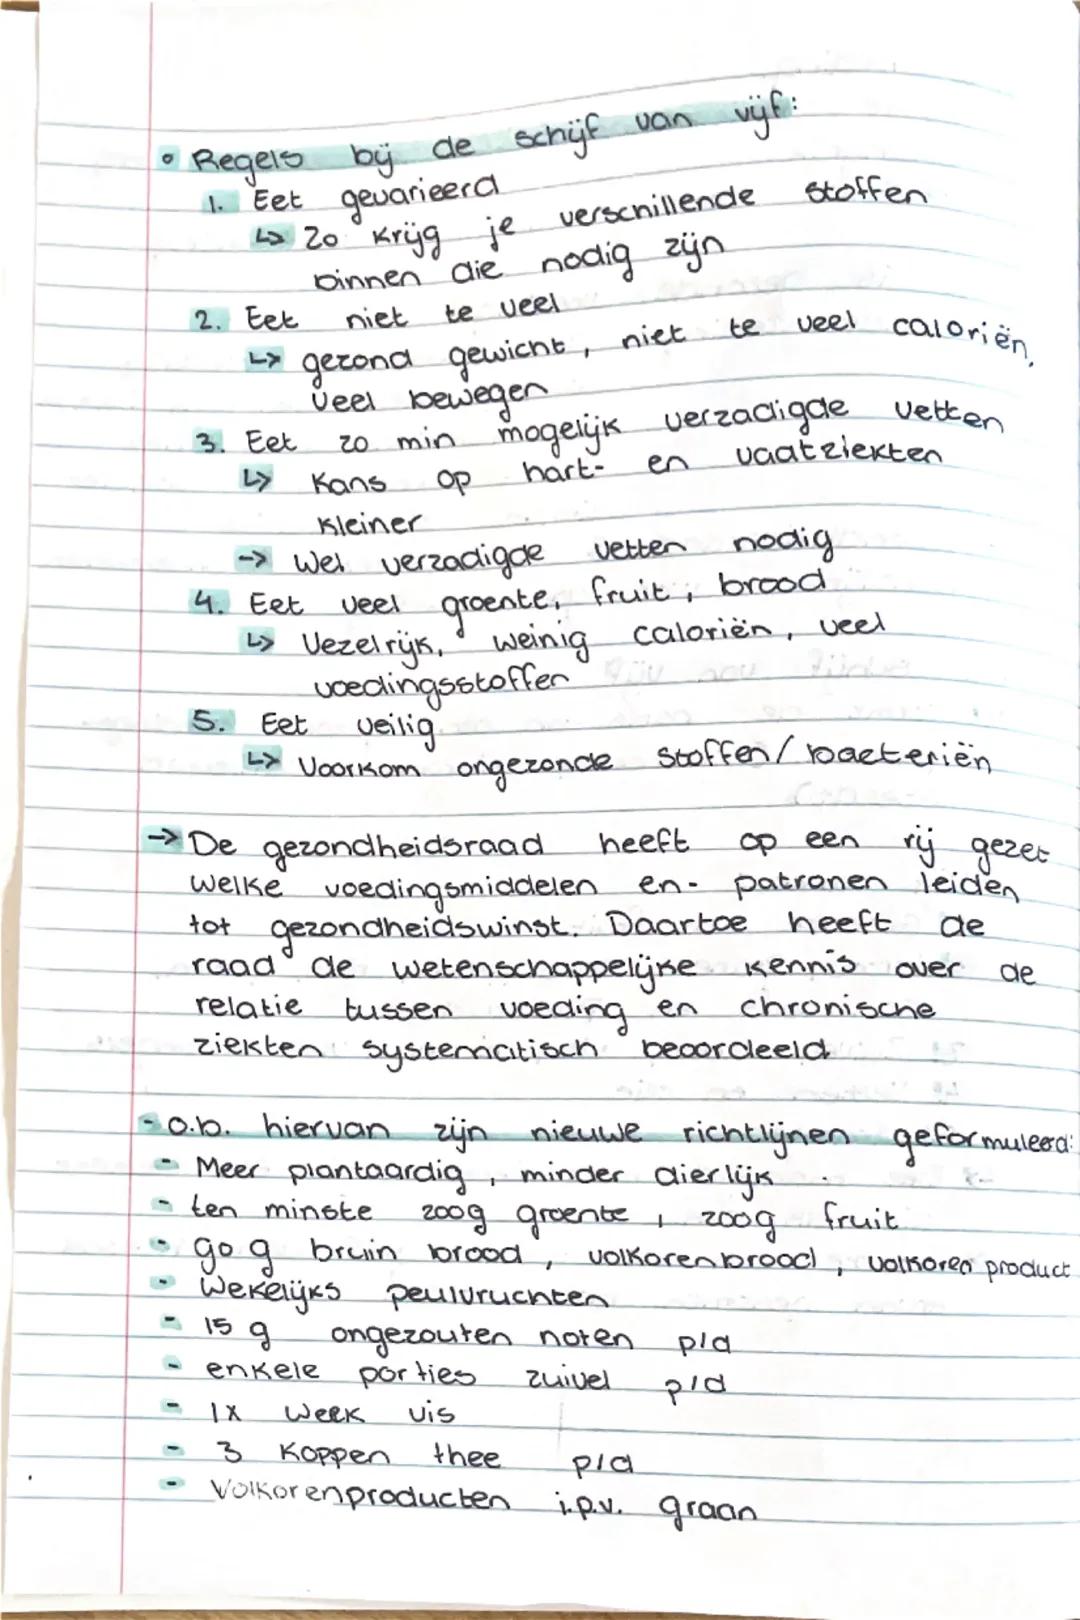 • Regels bij de schijf van vijf:
1. Eet gevarieerd
↳ Zo krijg je verschillende stoffen
binnen die nodig zijn
2. Eet niet te veel
↳ gezond gewicht, niet te veel caloriën,
veel bewegen
3. Eet zo min mogelijk verzadigde vetten
↳ Kans op hart- en vaatziekten
kleiner
-> Wel verzadigde vetten nodig
4. Eet veel groente, fruit, brood
↳ Vezelrijk, weinig caloriën, veel
voedingsstoffen
5. Eet veilig
↳ Voorkom ongezonde stoffen/bacteriën
-> De gezondheidsraad heeft op een rij gezet
welke voedingsmiddelen en- patronen leiden
tot gezondheidswinst. Daartoe heeft de
raad de wetenschappelijke kennis over de
relatie tussen voeding en chronische
ziekten systematisch beoordeeld
- o.b. hiervan zijn nieuwe richtlijnen geformuleerd:
- Meer plantaardig, minder dierlijk
- ten minste 200g groente, 200g fruit
- 90 g bruin brood, volkorenbrood, volkoren product
- Wekelijks peulvruchten
- 15 g ongezouten noten p/d
- enkele porties zuivel p/d
- 1x week vis
- 3 koppen thee p/d
- Volkorenproducten i.p.v. graan